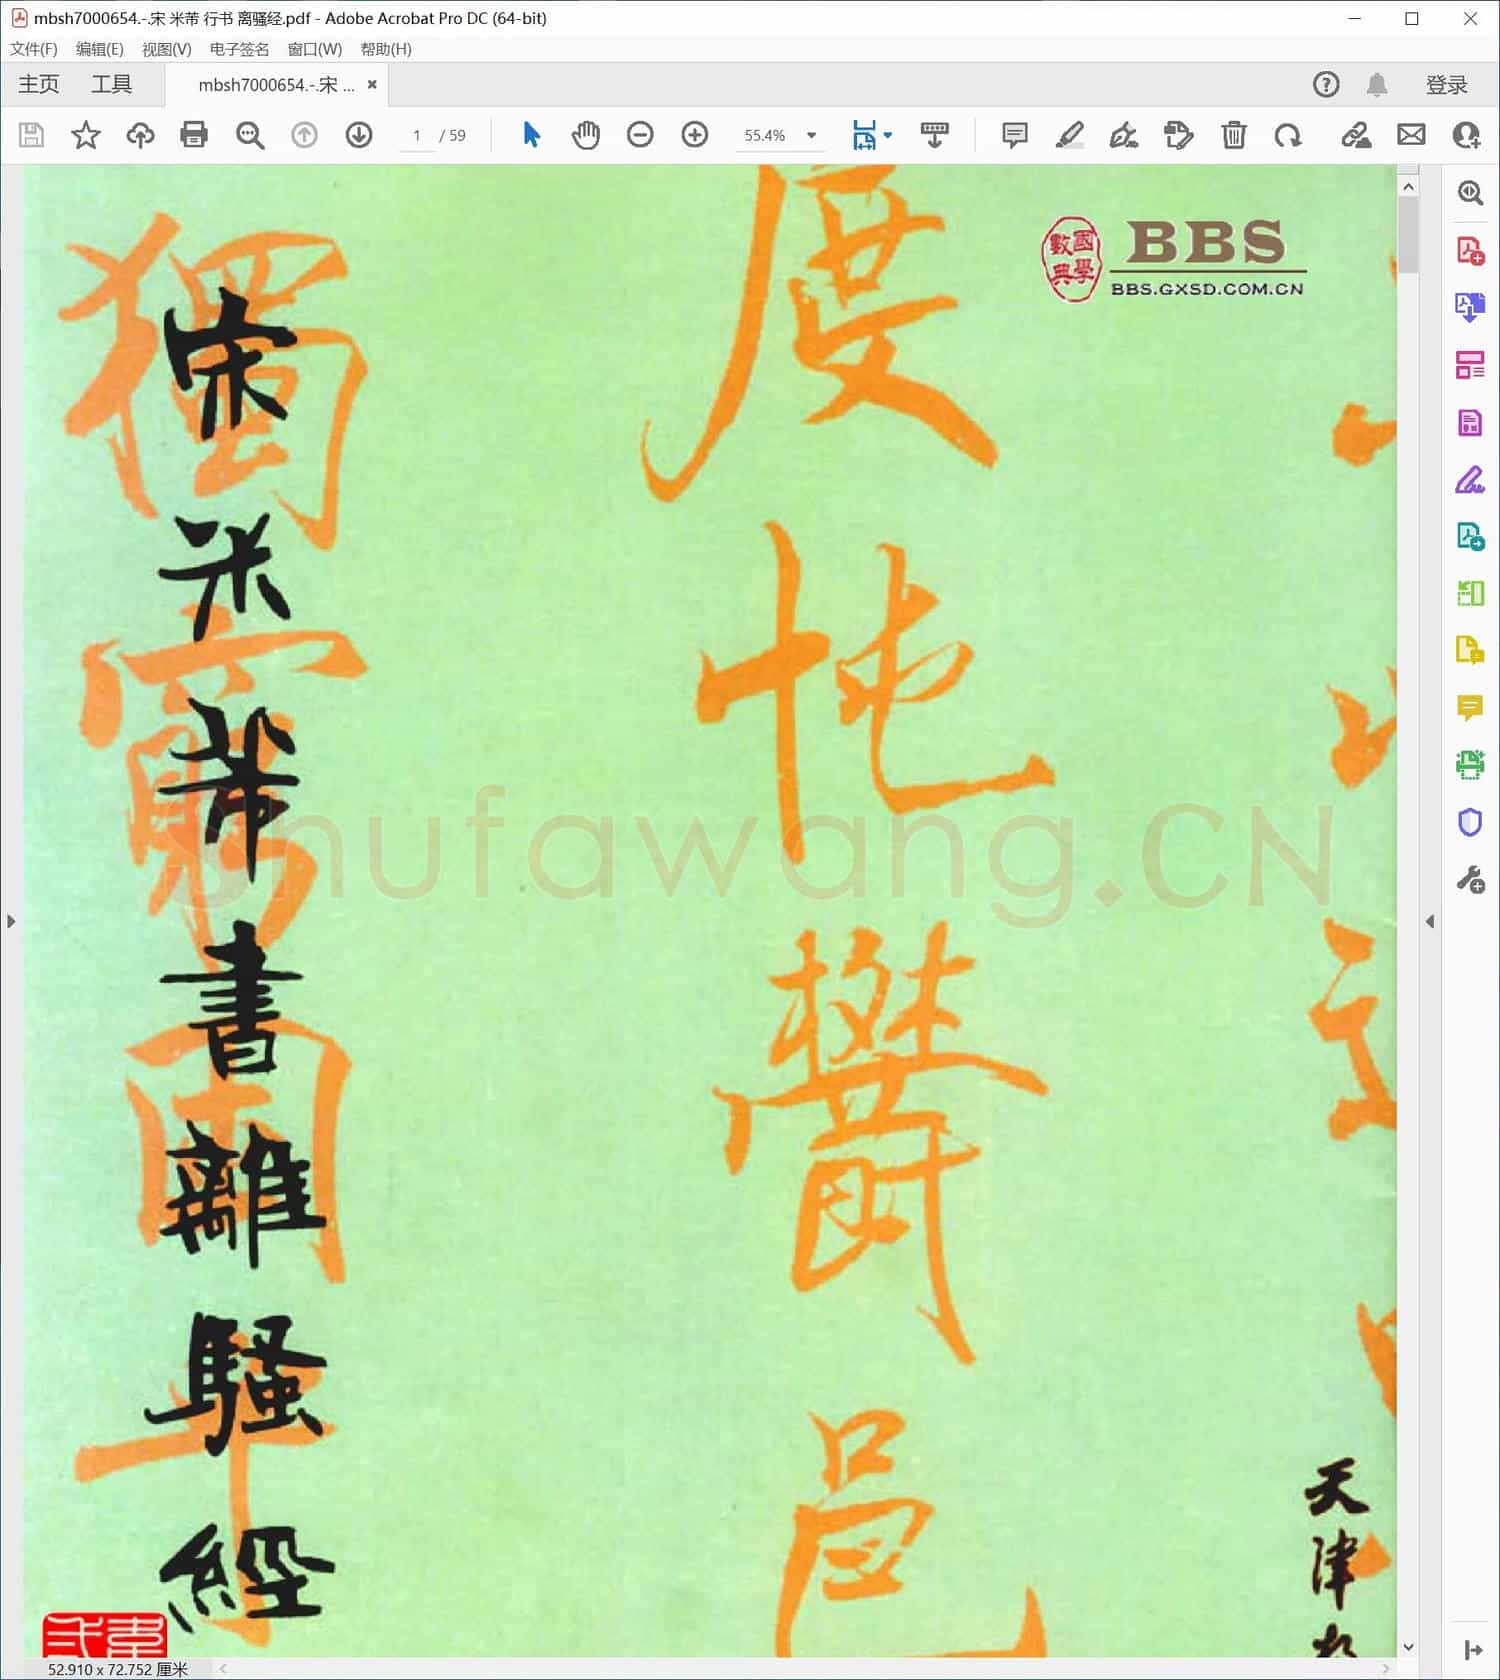 mbsh7000654.-.宋 米芾 行书 离骚经.pdf - Adobe Acrobat Pro DC (64-bit)
文件(F) 编辑(E) 视图(V) 电子签名 窗口(W) 帮助(H)
主页 工具 mbsh7000654.-.宋 ... 登录
1 / 59 55.4%
數典國學
BBS
BBS.GXSD.COM.CN
度忚鬱邑
獨窮困乎
宋米芾書離騷經
shufawang.CN
天津
52.910 x 72.752 厘米